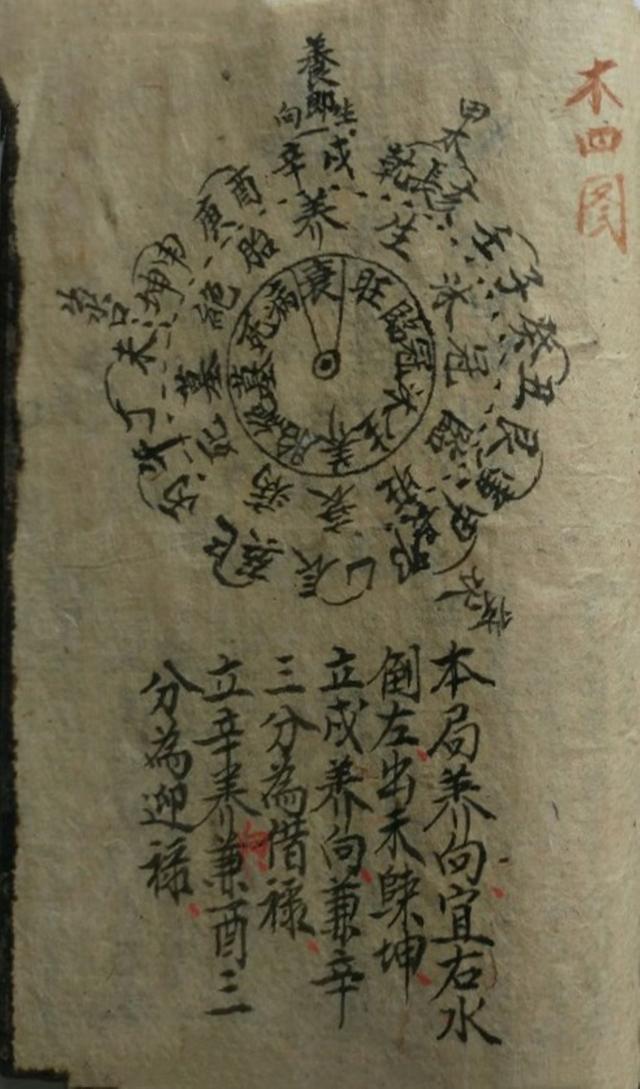 木四图
養即生
向一
辛戌
乾長亥
甲木
壬子
癸丑
艮
巳
辰
丁未
坤申
庚酉
养
生
沐
冠
臨
旺
衰
病
死
墓
絕
胎
衰
旺
臨
冠
沐
生
养
胎
絕
墓
死
病
本局养向宜右水
倒左出未歸坤
立戌养向兼辛
三分為借祿
立辛养向兼酉三
分為迎祿